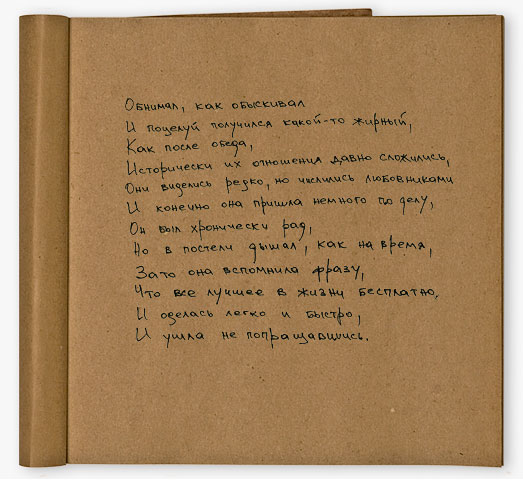 Обнимал, как обыскивал
И поцелуй получился какой-то жирный,
Как после обеда,
Исторически их отношения давно сложились,
Они виделись редко, но числились любовниками
И конечно она пришла немного по делу,
Он был хронически рад,
Но в постели дышал, как на время,
Зато она вспомнила фразу,
Что все лучшее в жизни бесплатно.
И оделась легко и быстро,
И ушла не попрощавшись.